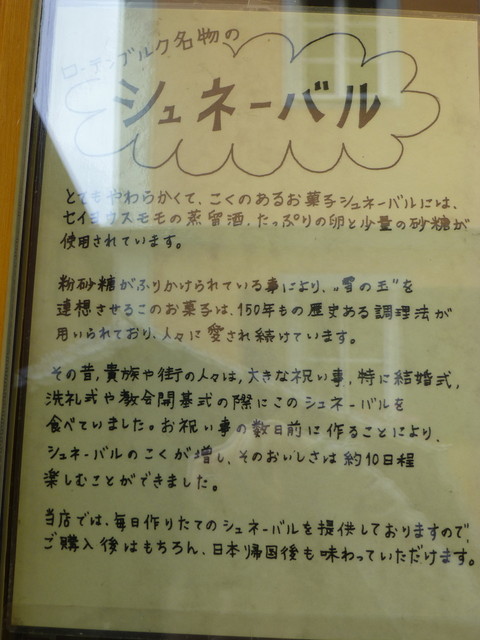 ローテンブルク名物の
シュネーバル
とてもやわらかくて、こくのあるお菓子シュネーバルには、
セイヨウスモモの蒸留酒、たっぷりの卵と少量の砂糖が
使用されています。
粉砂糖がふりかけられている事により、„雪の玉“を
連想させるこのお菓子は、150年もの歴史ある調理法が
用いられており、人々に愛され続けています。
その昔,貴族や街の人々は,大きな祝い事,特に結婚式,
洗礼式や教会開基式の際にこのシュネーバルを
食べていました。お祝い事の数日前に作ることにより、
シュネーバルのこくが増し、そのおいしさは約10日程
楽しむことができました。
当店では、毎日作りたてのシュネーバルを提供しておりますので、
ご購入後はもちろん、日本帰国後も味わっていただけます。